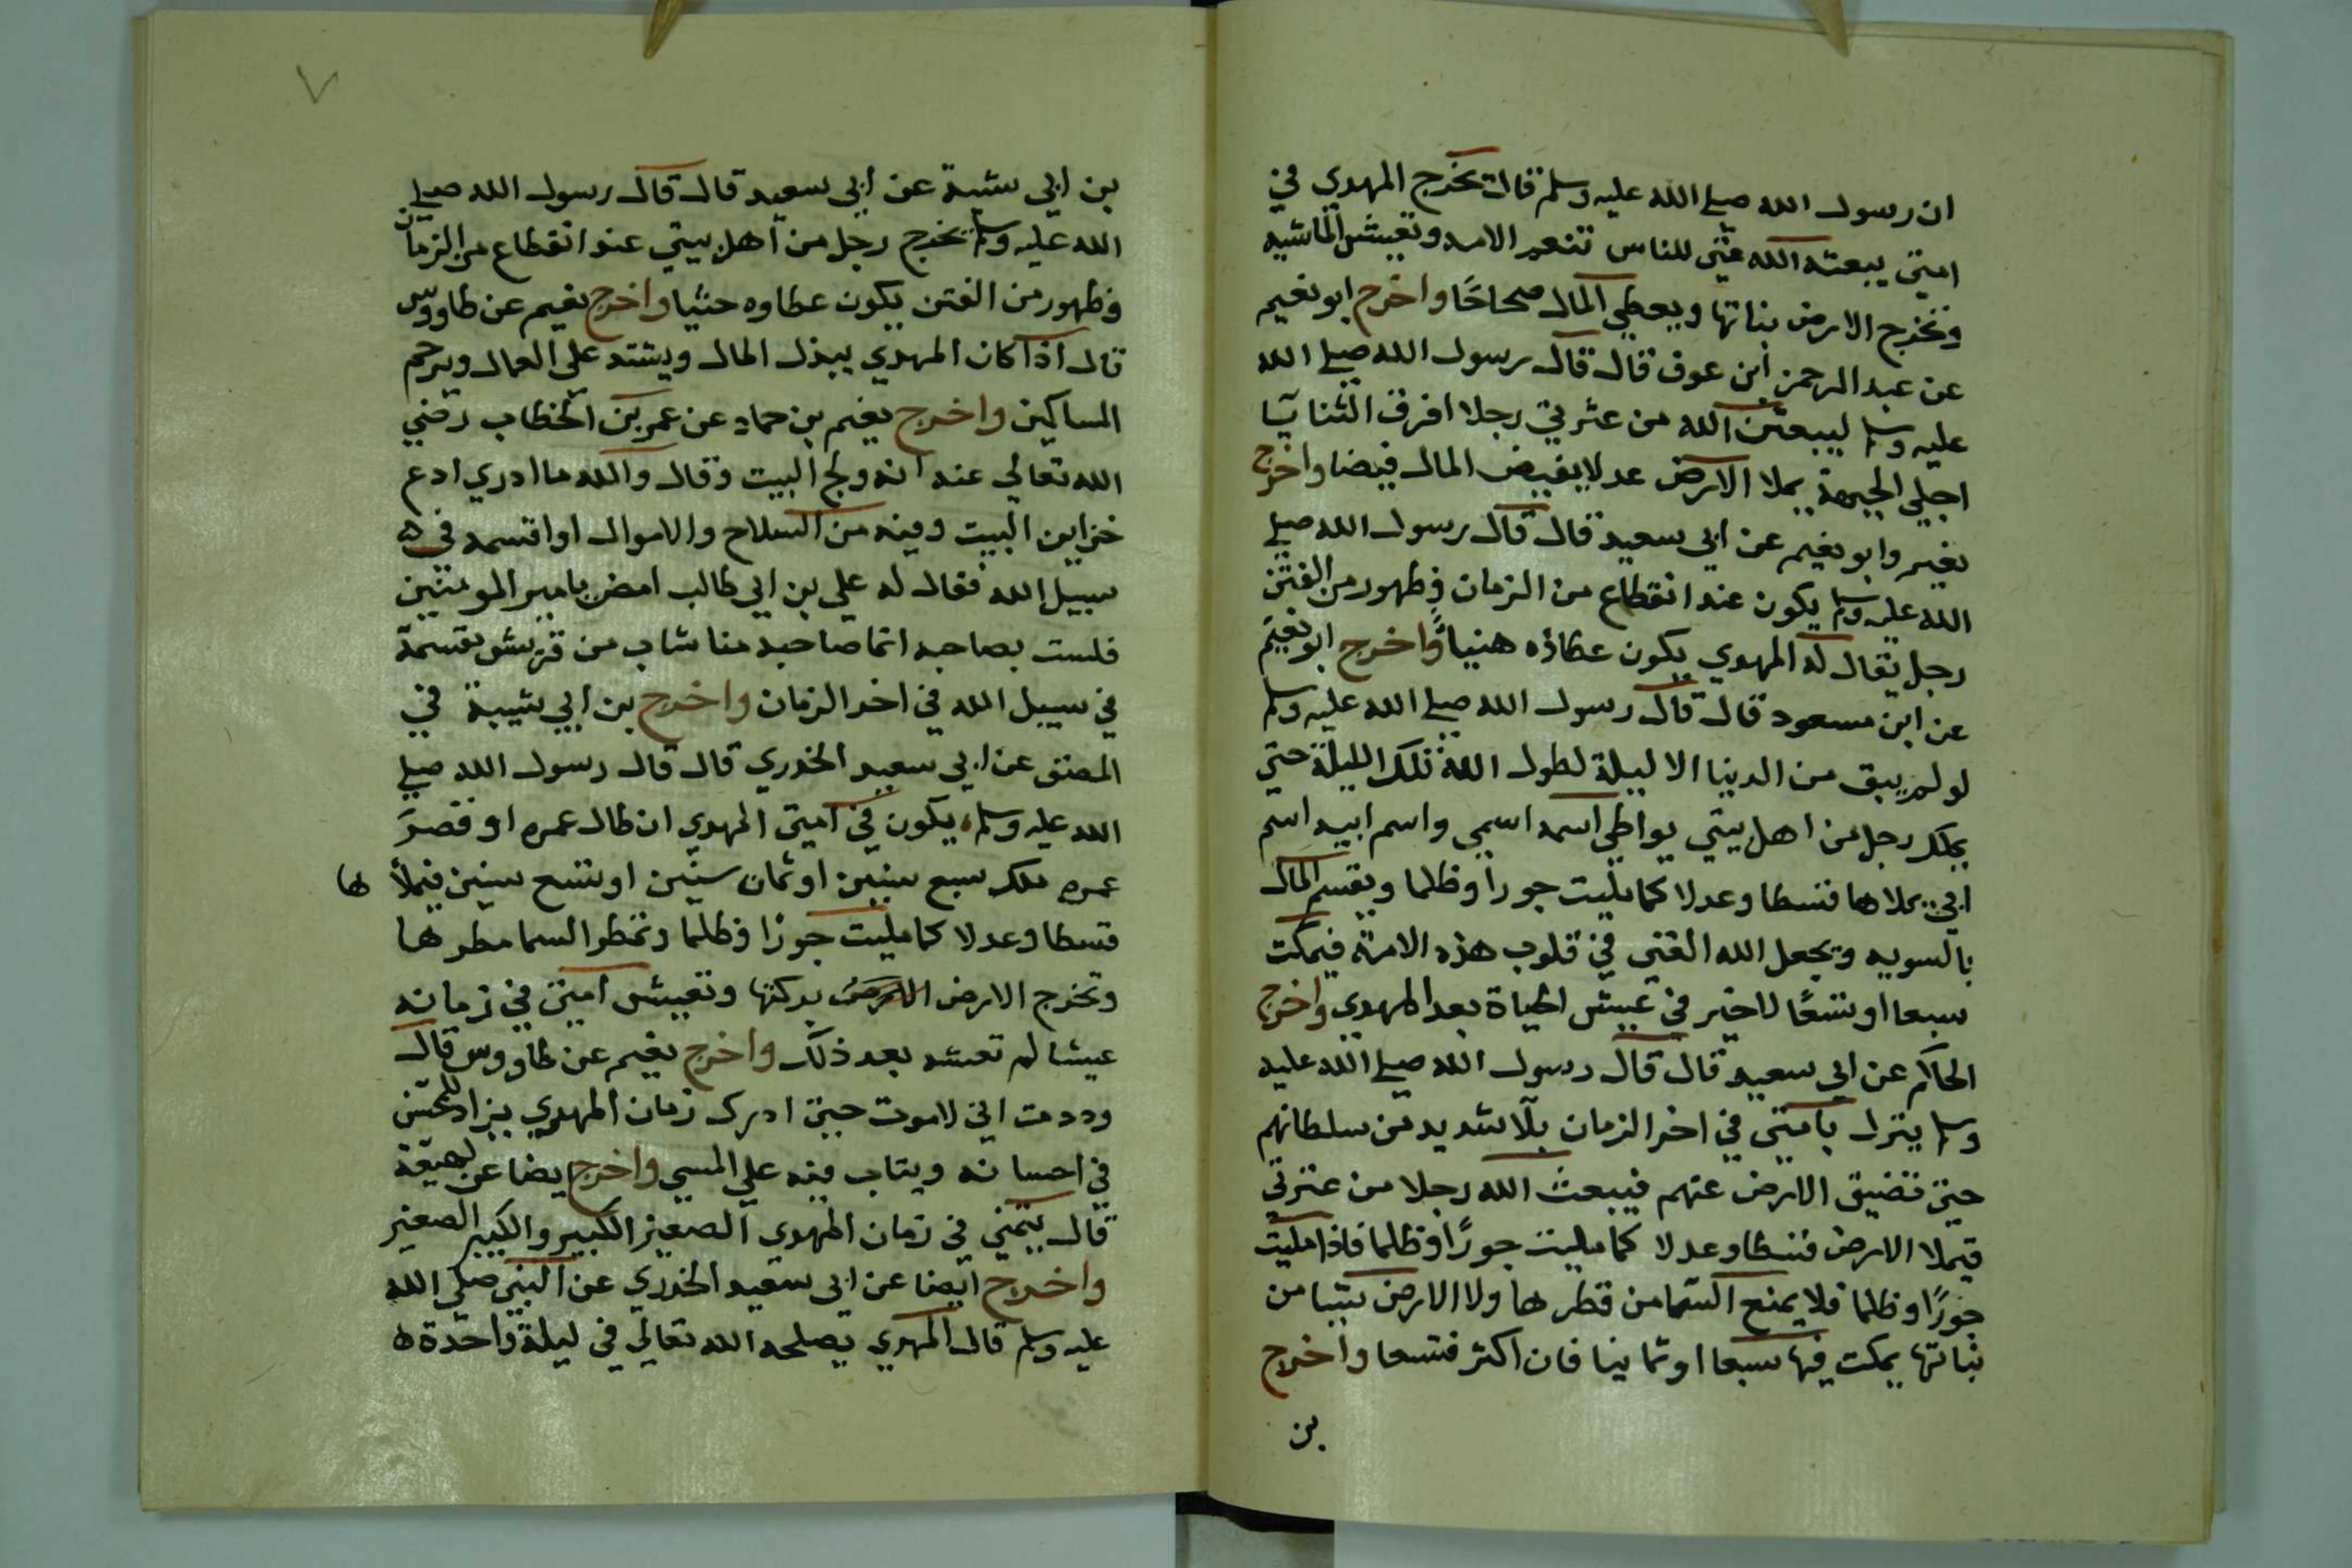 ان رسول الله صلى الله عليه وسلم قال يخرج المهدي في
امتي يبعثه الله غنى للناس تنعم الامه وتعيش الماشيه
وتخرج الارض بناتها ويعطي المال صحاحًا واخرج ابو نعيم
عن عبد الرحمن ابن عوف قال قال رسول الله صلى الله
عليه وسلم ليبعثن الله من عترتي رجلا افرق الثنايا
اجلي الجبهة يملا الارض عدلا يفيض المال فيضا واخرج
نعيم وابو نعيم عن ابي سعيد قال قال رسول الله صلى
الله عليه وسلم يكون عند انقطاع من الزمان وظهور من الفتن
رجل يقال له المهدي يكون عطاؤه هنياً واخرج ابو نعيم
عن ابن مسعود قال قال رسول الله صلى الله عليه وسلم
لو لم يبق من الدنيا الا ليلة لطول الله تلك الليلة حتي
يملك رجل من اهل بيتي يواطي اسمه اسمي واسم ابيه اسم
ابي يملاها قسطا وعدلا كما مليت جوراً وظلما ويقسم المال
بالسويه ويجعل الله الغني في قلوب هذه الامة فيمكث
سبعا او تسعًا لا خير في عيش الحياة بعد المهدي واخرج
الحاكم عن ابي سعيد قال قال رسول الله صلى الله عليه
وسلم ينزل بامتي في اخر الزمان بلآ شديد من سلطانهم
حتي تضيق الارض عنهم فيبعث الله رجلا من عترتي
فيملا الارض قسطا وعدلا كما مليت جورًا وظلما فاذا مليت
جورًا وظلما فلا يمنع السما من قطرها ولا الارض شيا من
نباتها يمكث فيها سبعا او ثمانيا فان اكثر فتسعا واخرج
بن
٧
بن ابي شيبة عن ابي سعيد قال قال رسول الله صلى
الله عليه وسلم يخرج رجل من اهل بيتي عند انقطاع من الزمان
وظهور من الفتن يكون عطاوه حثيا واخرج نعيم عن طاووس
قال اذا كان المهدي يبذل المال ويشتد على العمال ويرحم
المساكين واخرج نعيم بن حماد عن عمر بن الخطاب رضي
الله تعالي عنه انه ولج البيت وقال والله ما ادري ادع
خزاين البيت وفيه من السلاح والاموال او اقسمه في
سبيل الله فقال له علي بن ابي طالب امض يا مير المومنين
فلست بصاحبه انما صاحبه منا شاب من قريش يقسمه
في سبيل الله في اخر الزمان واخرج بن ابي شيبة في
المصنف عن ابي سعيد الخدري قال قال رسول الله صلى
الله عليه وسلم يكون في امتي المهدي ان طال عمره او قصر
عمره ملك سبع سنين او ثمان سنين او تسع سنين فيملأ ها
قسطا وعدلا كما مليت جورًا وظلما وتمطر السما مطرها
وتخرج الارض بركتها وتعيش امتي في زمانه
عيشا لم تعشه بعد ذلك واخرج نعيم عن طاووس قال
وددت اني لا موت حتي ادرك زمان المهدي يزاد للمحسن
في احسانه ويتاب فيه علي المسي واخرج ايضا عن لهيعة
قال يتمني في زمان المهدي الصغير الكبير والكبير الصغير
واخرج ايضا عن ابي سعيد الخدري عن النبي صلي الله
عليه وسلم قال المهدي يصلحه الله تعالي في ليلة واحدة